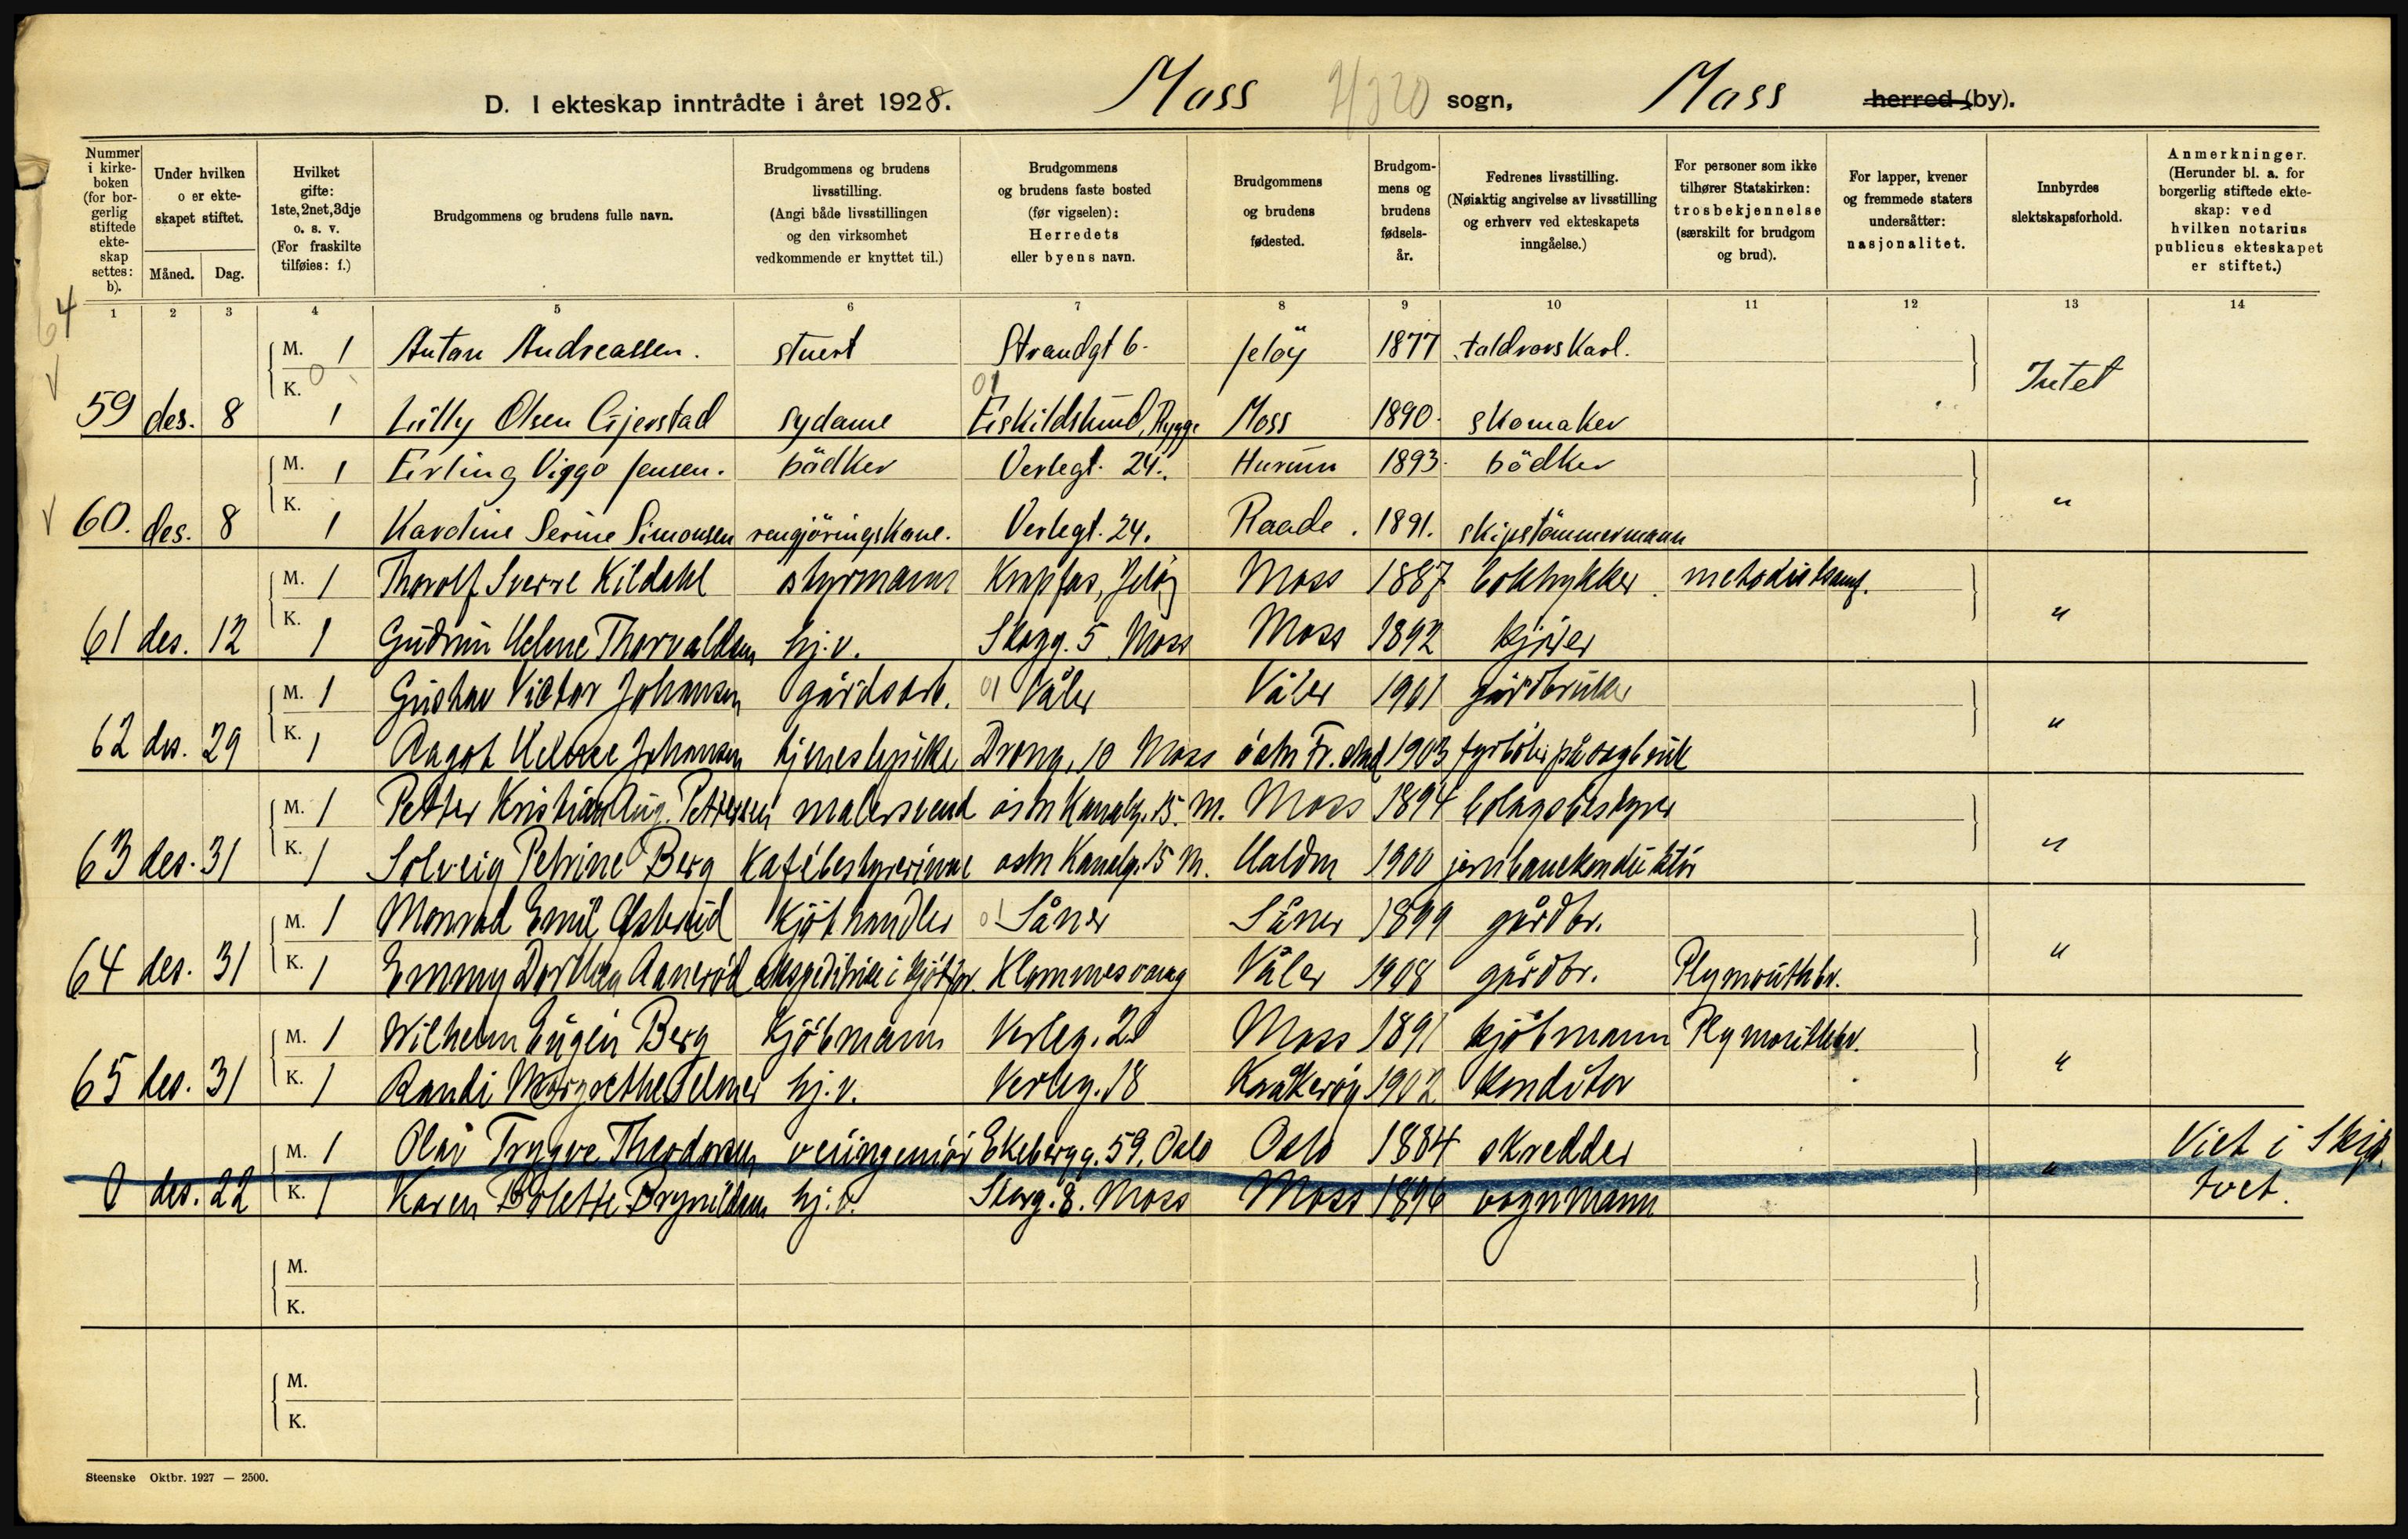 D. I ekteskap inntrådte i året 1928. Moss sogn, Moss herred (by).
Nummer i kirkeboken (for borgerlig stiftede ekteskap settes: b).
Under hvilken o er ekteskapet stiftet.
Måned. Dag.
Hvilket gifte: 1ste, 2net, 3dje o. s. v. (For fraskilte tilføies: f.)
Brudgommens og brudens fulle navn.
Brudgommens og brudens livsstilling. (Angi både livsstillingen og den virksomhet vedkommende er knyttet til.)
Brudgommens og brudens faste bosted (før vigselen): Herredets eller byens navn.
Brudgommens og brudens fødested.
Brudgommens og brudens fødselsår.
Fedrenes livsstilling. (Nøiaktig angivelse av livsstilling og erhverv ved ekteskapets inngåelse.)
For personer som ikke tilhører Statskirken: trosbekjennelse (særskilt for brudgom og brud).
For lapper, kvener og fremmede staters undersåtter: nasjonalitet.
Innbyrdes slektskapsforhold.
Anmerkninger. (Herunder bl. a. for borgerlig stiftede ekteskap: ved hvilken notarius publicus ekteskapet er stiftet.)
1 2 3 4 5 6 7 8 9 10 11 12 13 14
64
M. 1 Anton Andreassen. stuert Strandgt 6. Jeløy 1877 Intet
59 des. 8 K. 1 Lilly Olsen Gjerstad sydame Eskildslund, Rygge Moss 1890. skomaker
M. 1 Erling Viggo Jensen. bødker Verlegt. 24. Hurum 1893. bødker "
60. des. 8 K. 1 Karoline Serine Simonsen rengjøringskone. Verlegt. 24. Raade. 1891. skipstømmermann
M. 1 Thorolf Sverre Kildahl styrmann Krapfos, Jeløy Moss 1887 boktrykker. metodistsamf. "
61 des. 12 K. 1 Gudrun Helene Thorvaldsen hj.v. Skogg. 5 Moss Moss 1892 kjører
M. 1 Gustav Victor Johansen gårdsarb. 01 Våler Våler 1901 gårdbruker "
62 des. 29 K. 1 Dagot Johansen tjenestepike Drong. 10 Moss østre Fr.stad 1903 fyrbøter på sagbruk
M. 1 Petter Kristian Aug. Pettersen malersvend østre Kanalg. 15. M. Moss 1894 bolagsbestyrer "
63 des. 31 K. 1 Solveig Petrine Berg Kafébestyrerinne østre Kanalg. 15 M. Halden 1900 jernbanekonduktør
M. 1 Monrad Emil kjøthandler 01 Såner Såner 1899 gårdbr. "
64 des. 31 K. 1 Emmy Dorthea Aanerød ekspeditrise i kjøtfor. Klommesvang Våler 1908 gårdbr. Plymouthbr.
M. 1 Wilhelm Eugen Berg kjøbmann Verleg. 20 Moss 1891 kjøbmann Plymouthbr. "
65 des. 31 K. 1 Randi Margrethe Selmer hj.v. Verleg. 18 Kråkerøy 1902 konditor
M. 1 Olav Trygve Theodorsen veiingeniør Ekebergg. 59, Oslo Oslo 1884 skredder " Viet i Skjp.
0 des. 22 K. 1 Karen Bolette Brynildsen hj.v. Storg. 8. Moss Moss 1896 vognmann tvet.
M.
K.
M.
K.
Steenske Oktbr. 1927 — 2500.